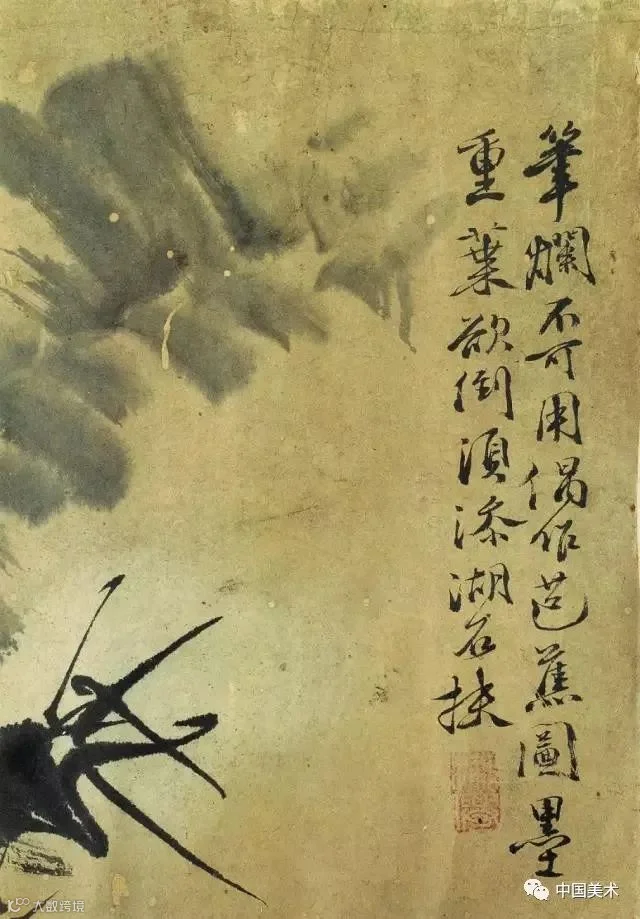 筆爛不可用偶作芭蕉圖墨
重葉欲倒須添湖石扶
中国美术
大数跨境